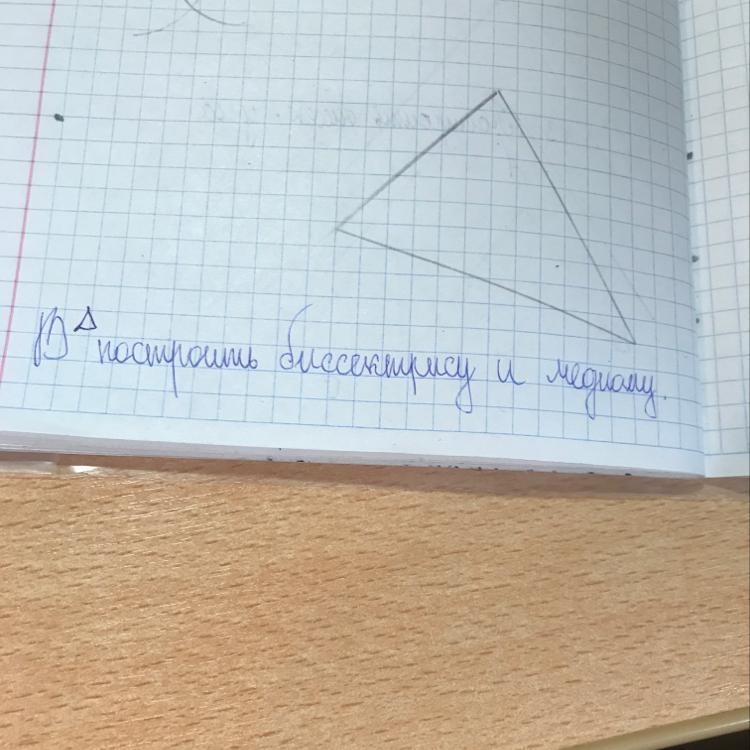 В △ построить биссектрису и медиану.